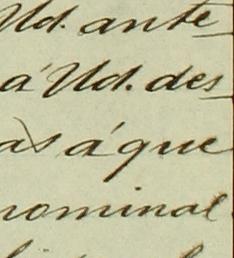 Ud. ante
á Ud. des_
as á que
nominal